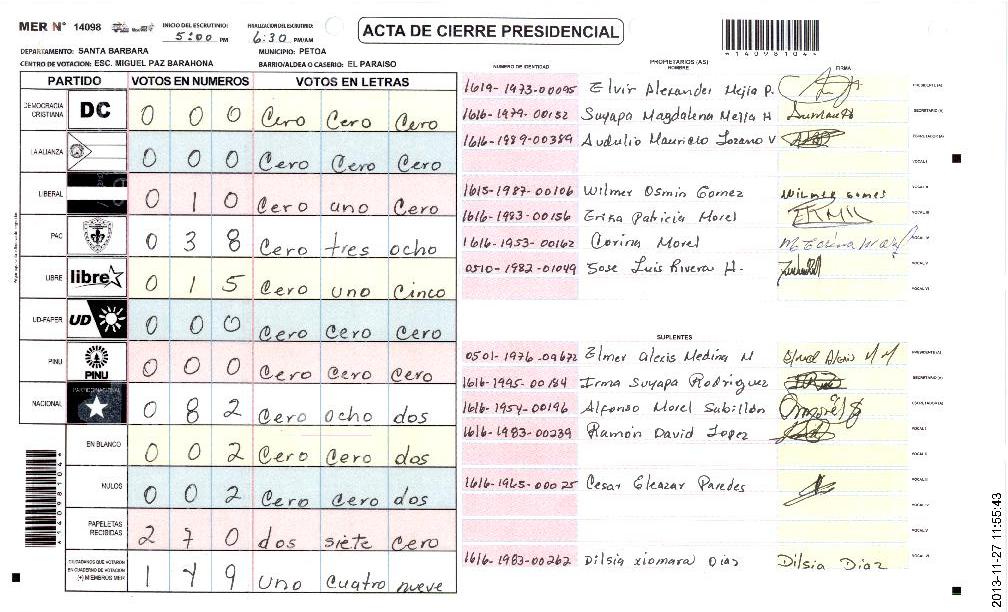 MER Nº 14098 INICIO DEL ESCRUTINIO: 5:00 PM FINALIZACION DEL ESCRUTINIO: 6:30 PM/AM ACTA DE CIERRE PRESIDENCIAL
*14098104*
DEPARTAMENTO: SANTA BARBARA MUNICIPIO: PETOA
CENTRO DE VOTACION: ESC. MIGUEL PAZ BARAHONA BARRIO/ALDEA O CASERIO: EL PARAISO
PARTIDO VOTOS EN NUMEROS VOTOS EN LETRAS
DEMOCRACIA CRISTIANA DC 0 0 0 Cero Cero Cero
LA ALIANZA 0 0 0 Cero Cero Cero
LIBERAL 0 1 0 Cero uno Cero
PAC 0 3 8 Cero tres ocho
LIBRE libre 0 1 5 Cero uno Cinco
UD-FAPER UD 0 0 0 Cero Cero Cero
PINU PINU 0 0 0 Cero Cero Cero
NACIONAL 0 8 2 Cero ocho dos
EN BLANCO 0 0 2 Cero Cero dos
NULOS 0 0 2 Cero Cero dos
PAPELETAS RECIBIDAS 2 7 0 dos siete Cero
CIUDADANOS QUE VOTARON EN CUADERNO DE VOTACION (+) MIEMBROS MER 1 4 9 uno Cuatro nueve
*14098104*
NUMERO DE IDENTIDAD PROPIETARIOS (AS) NOMBRE FIRMA
1619-1973-00095 Elvir Alexander Mejia P. PRESIDENTE(A)
1616-1979-00152 Suyapa Magdalena Mejia H SECRETARIO (A)
1616-1989-00389 Audulio Mauricio Lozano V ESCRUTADOR(A)
VOCAL I
1615-1987-00106 Wilmer Osmin Gomez Wilmer Gomes VOCAL II
1616-1983-00156 Erika Patricia Morel VOCAL III
1616-1953-00162 Corina Morel VOCAL IV
0510-1982-01049 Jose Luis Rivera H. VOCAL V
VOCAL VI
SUPLENTES
0501-1976-09672 Elmer Alexis Medina M PRESIDENTE(A)
1616-1995-00184 Irma Suyapa Rodriguez SECRETARIO (A)
1616-1954-00196 Alfonso Morel Sabillon ESCRUTADOR(A)
1616-1983-00239 Ramón David Lopez VOCAL I
VOCAL II
1616-1965-00025 Cesar Eleazar Paredes VOCAL III
VOCAL IV
VOCAL V
1616-1983-00262 Dilsia xiomara Dias Dilsia Diaz VOCAL VI
2013-11-27 11:55:43